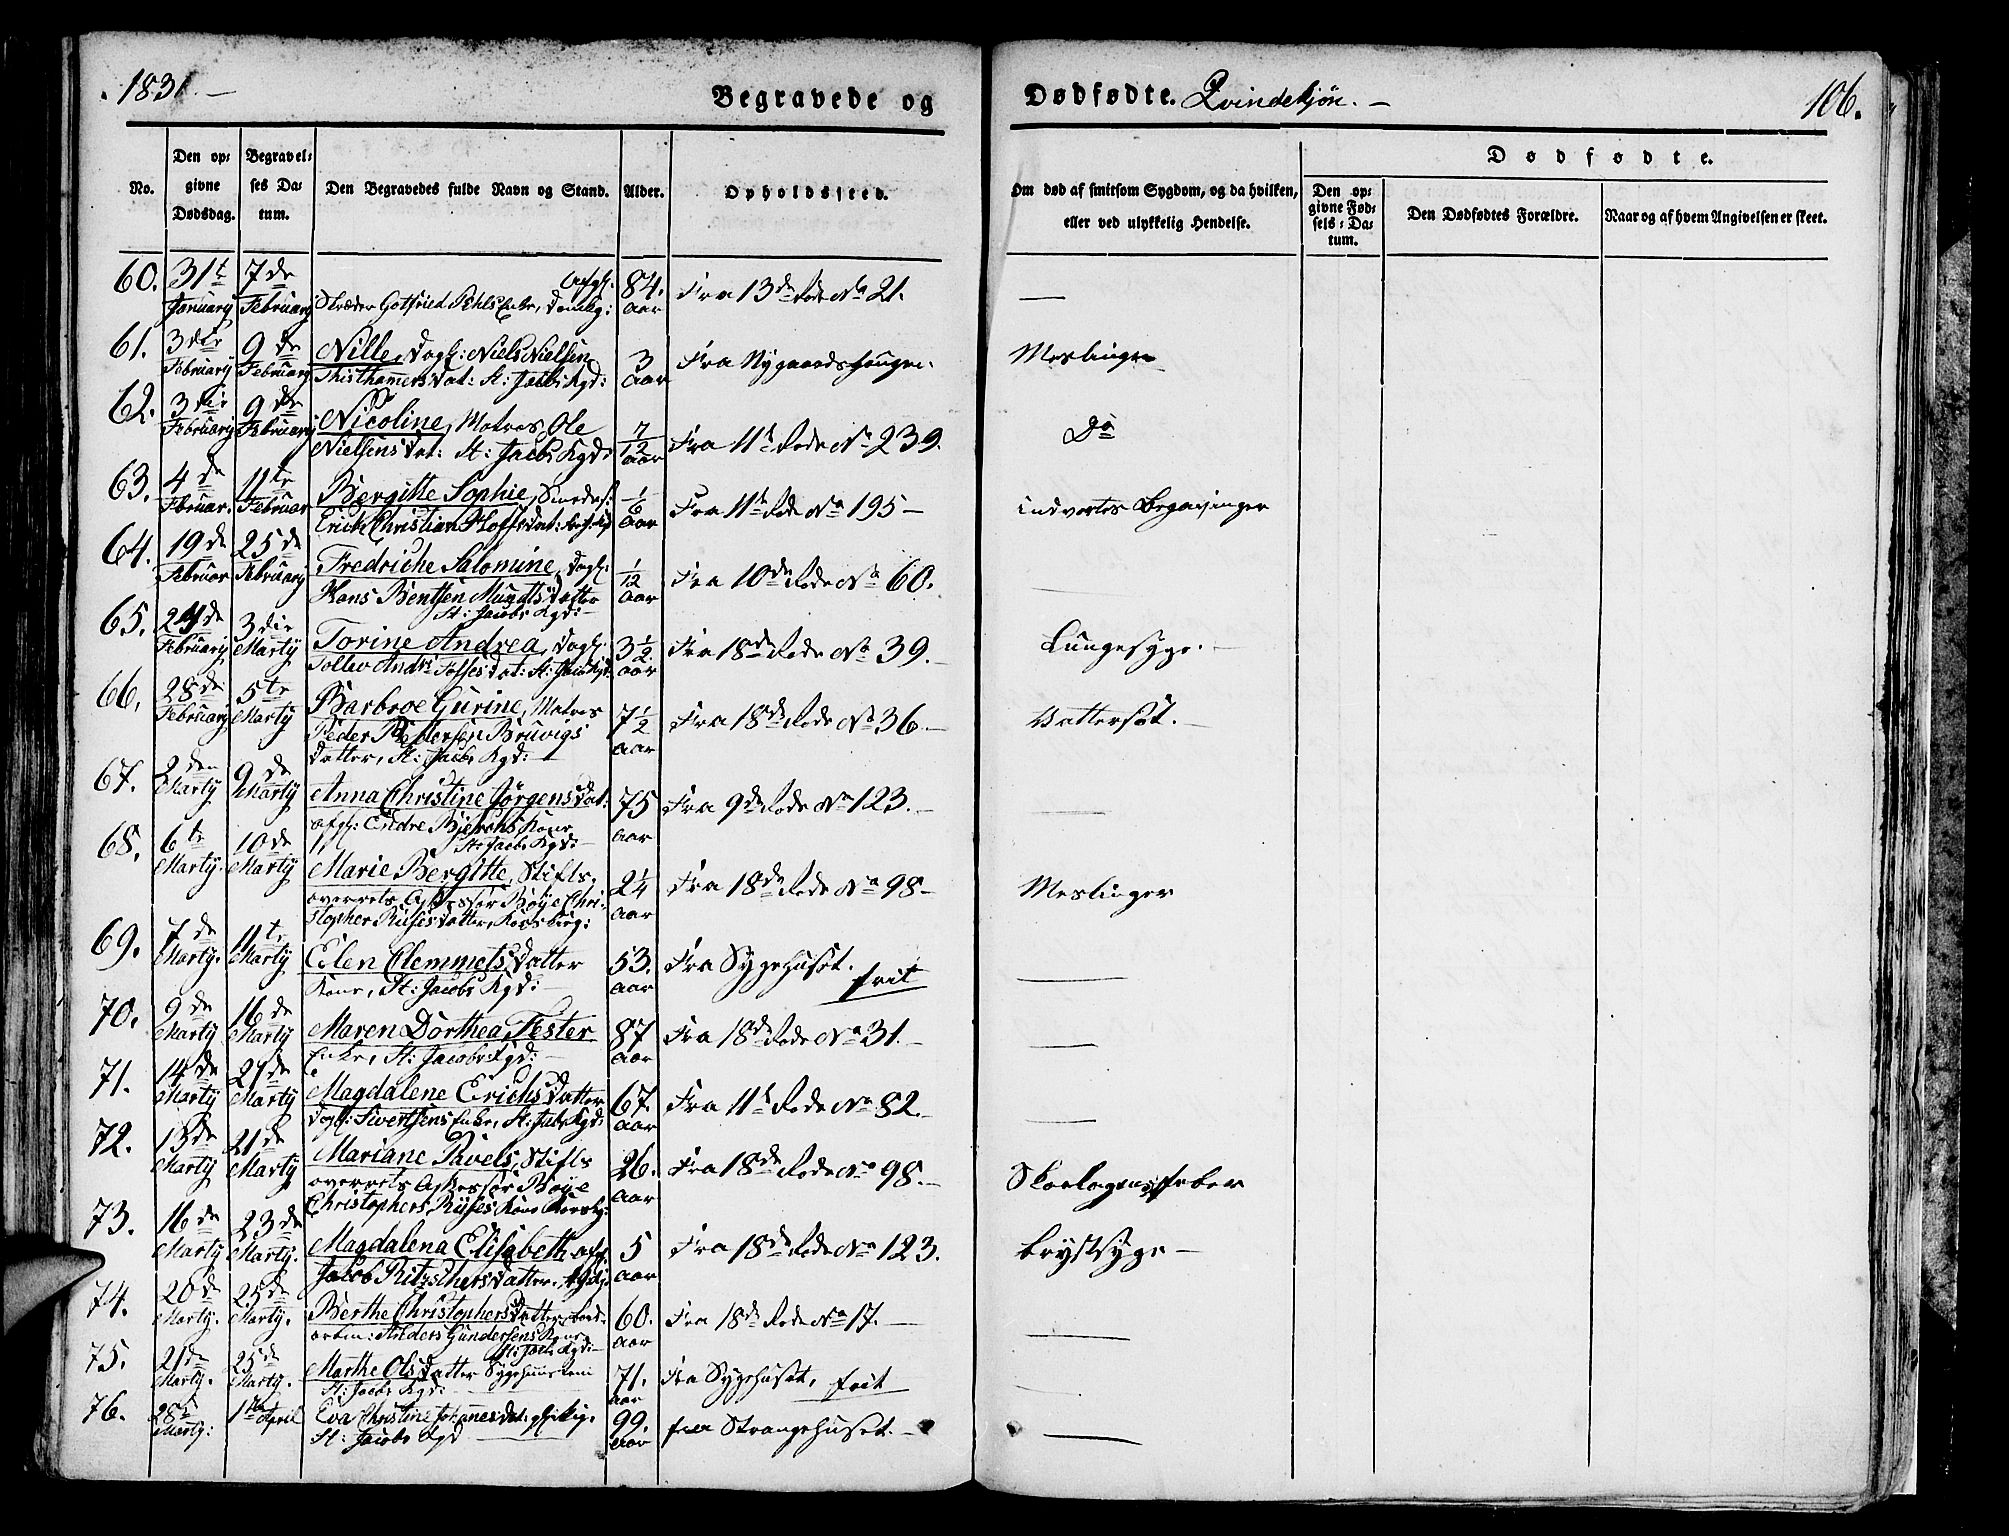 1831.
Begravede og
Dødfødte. Qvindekjøn.
106.
No.
Den opgivne Dødsdag.
Begravelses Datum.
Den Begravedes fulde Navn og Stand.
Alder.
Opholdssted.
Om død af smitsom Sygdom, og da hvilken,
eller ved ulykkelig Hendelse.
Dødfødte.
Den opgivne Fødsels-Datum.
Den Dødfødtes Forældre.
Naar og af hvem Angivelsen er skeet.
60. 31t January 7de February Afgl:
Skræder Gotfried Enke, Domkg: 84. aar Fra 13de Rode No 21. —
61. 3die February 9de February Nille, Dagl: Niels Nielsen
dat: St: Jacbs Kgd: 3 aar Fra Nygaardshougen. Meslinger
62. 3die February 9de February Nicoline, Matros Ole
Nielsens dat: St: Jacbs Kgd: 7/12 aar Fra 11t Rode No 239. Do
63. 4de Februar. 11te Februar Bergitte Sophie, Smedes:
Erick Christian Hoffs dat: 1/6 aar Fra 11t Rode No 195 — indvortes
64. 19de Februar 25de February Fredriche Salomine, Dagl:
Hans Bentsen Mundts datter
St: Jacobs Kgd: 1/12 aar Fra 10de Rode No 60. —
65. 24de February 3die Marty Torine Andrea, Dagl:
Tollev Andrs dat: St: Jacobs Kgd: 3 1/2 aar Fra 18de Rode No 39. — Lungesyge. —
66. 28de February 5te Marty Barbroe Gurine, Matros
Peder Pedersen Bruvigs
datter, St: Jacbs Kgd: — 7 1/2 aar Fra 18de Rode No 36. — Vattersot. —
67. 2den Marty 9de Marty Anna Christine Jørgens dat:
afgl: Endre Kone
St: Jacbs Kgd: — 75 aar Fra 9de Rode No 123. — —
68. 6te Marty. 10de Marty Marie Bergitte, Stifts-
overrets Assessor Böye Chri-
stopher Riises datter, Korskirg: 2 1/4 aar Fra 18de Rode No 98 — Meslinger
69. 7de Marty. 11te Marty Eilen Clemmets datter
Kone, St: Jacobs Kgd: — 53. aar Fra Sygehuset. frit —
70. 9de Marty 16de Marty Maren Dorthea Fester
Enke, St: Jacobs Kgd: — 87 aar Fra 18de Rode No 31. — —
71. 14de Marty 21de Marty Magdalene Erichs datter
Dagl: Sivertsens Enke, St: Jacbs Kgd: 67 aar Fra 11t Rode No 82. — —
72. 13de Marty 21de Marty Mariane Pavels, Stifts
overrets Assessor Böye
Christophers Riises Kone 26. aar Fra 18de Rode No 98. — Skarlagensfeber
73. 16de Marty 23de Marty. Magdalena Elisabeth afg:
Jacob Ritzschers datter, 5 aar Fra 18de Rode No 123. Brystsyge —
74. 20de Marty. 25de Marty. Berthe Christophers datter,
arbm: Anders Gundersens Kone
St: Jacbs Kgd: — 60. aar Fra 18de Rode No 17. — —
75. 21de Marty. 25de Marty. Marthe Ols datter
St: Jacbs Kgd: 71. aar Fra Sygehuset, frit —
76. 28t Marty: 1te April Eva Christine Johannes dat:
St: Jacobs Kgd — 99. aar fra Strangehuset. — —